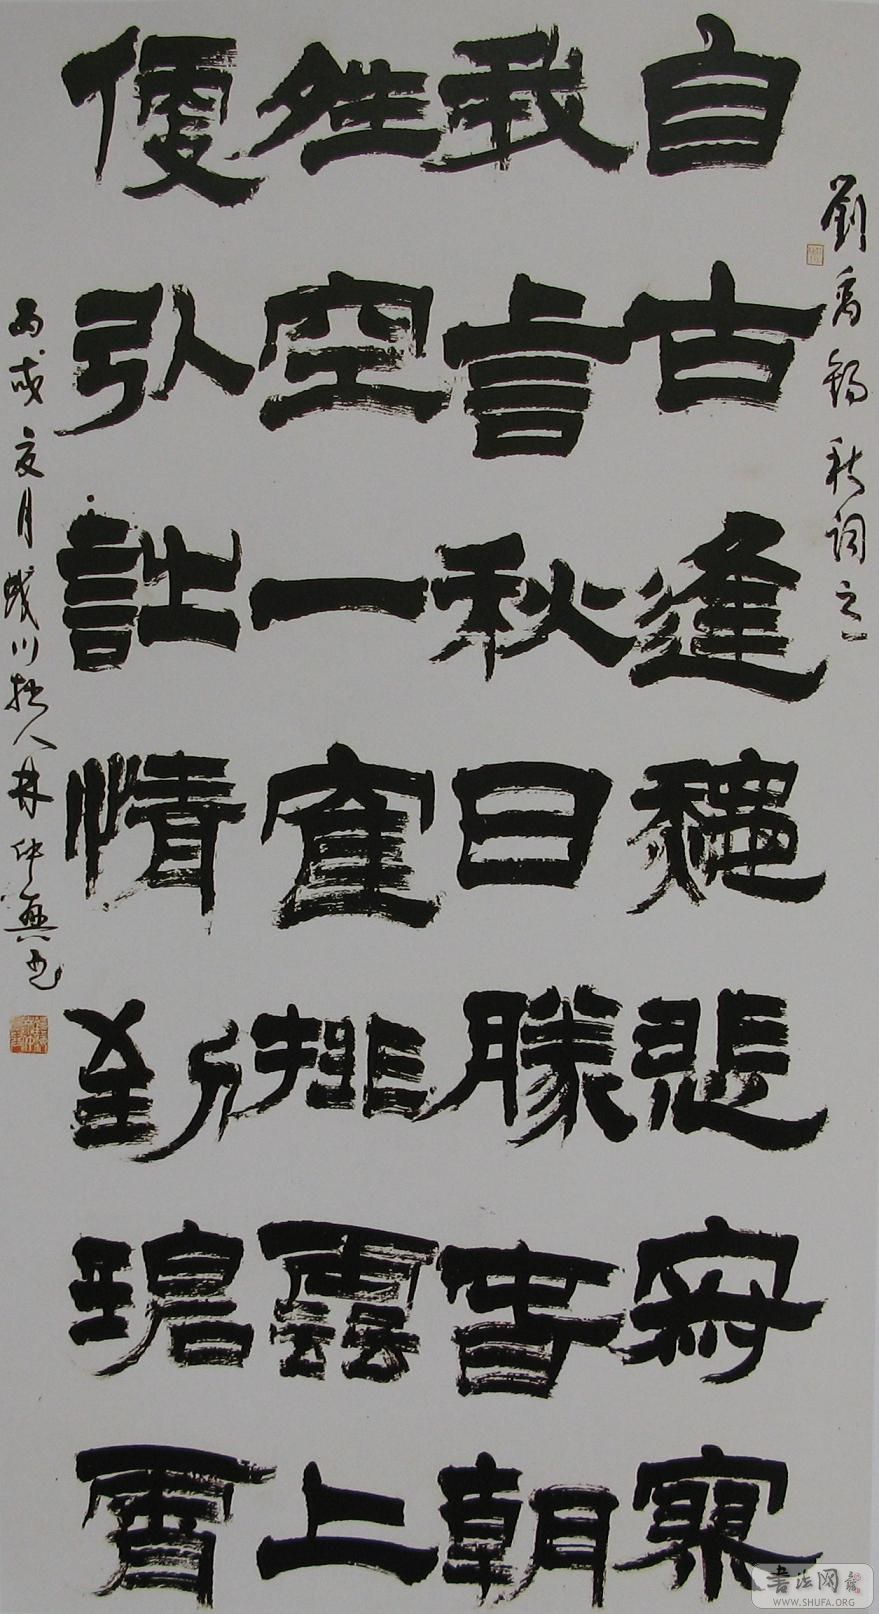 劉禹錫秋詞之一
自古逢龝悲寂寥
我言秋日勝春朝
夝空一隺排雲上
便引詩情到碧霄
丙戌夏月川拙人林仲興書
書法网
WWW.SHUFA.ORG